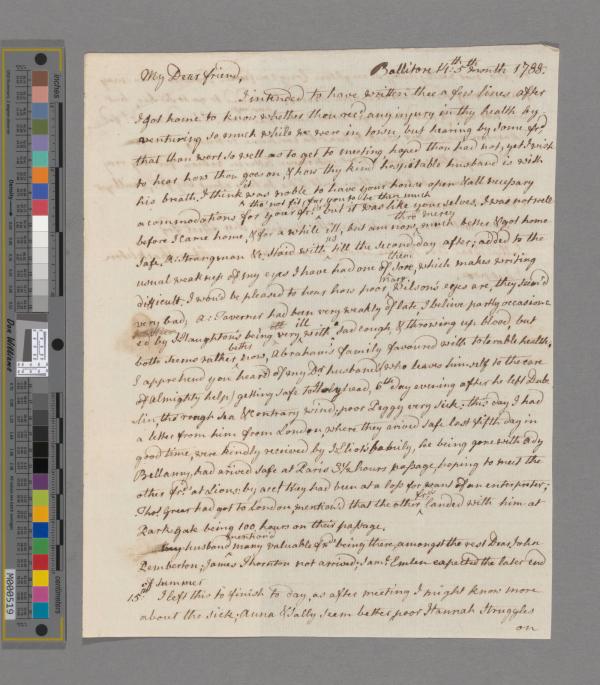 My Dear friend,
Ballitore 14th. 5th month 1788.
I intended to have written thee a few lines after
I got home to know whether thou recd. any injury in thy health by
venturing so much while we were in town, but hearing by some frd.
that thou wert so well as to get to meeting hoped thou had not, yet I wish
to hear how thou goes on, & how thy kind hospitable husband is with
his breath. I think it was noble to have your house open & all necessary
tho' not fit for you to be thea much
acommodations for your frds. but it was like yourselves, I was not well
thro' mercy
before I came home, & for a while ill, but am now much better & got home
safe, A: Strangman &c. staid with us till the second day after; added to the
usual weakness of my eyes I have had one of them sore, which makes writing
difficult, I would be pleased to hear how poor Mary Wilson's eyes are, they seem'd
very bad; A: Taverner had been very weakly of late, I believe partly occasion
ed by I: Haughton's being very ill with sad cough, & throwing up blood, but
both seems rather better now, Abraham's family favoured with tolerable health,
I apprehend you heard of my Dr. husband (who leaves himself to the care
of Almighty help) getting safe to Holyhead, 6th day evening after he left Dub
lin, tho' rough sea & contrary wind; poor Peggy very sick, this day I had
a letter from him from London, where they arived safe last fifth day in
good time, were kindly received by J: Eliot's family, he being gone with ady
Bellamy, had arived safe at Paris 3½ hours passage, hoping to meet the
other frds. at Lions, by acct. they had been at a loss for want of an enterpreter;
Thos. Grear had got to London, mention'd that the other frds. landed with him at
Parksgate being 100 hours on their passage.
my husband mentiond many valuable frds. being there, amongst the rest Dear John
Pemberton; James Thornton not arrived; Saml. Emlen expected the later end
of summer
15th. I left this to finish to day, as after meeting I might know more
about the sick, Anna & Sally seem better, poor Hannah struggles
on
inches
centimeters
Density
Don Williams
M000519